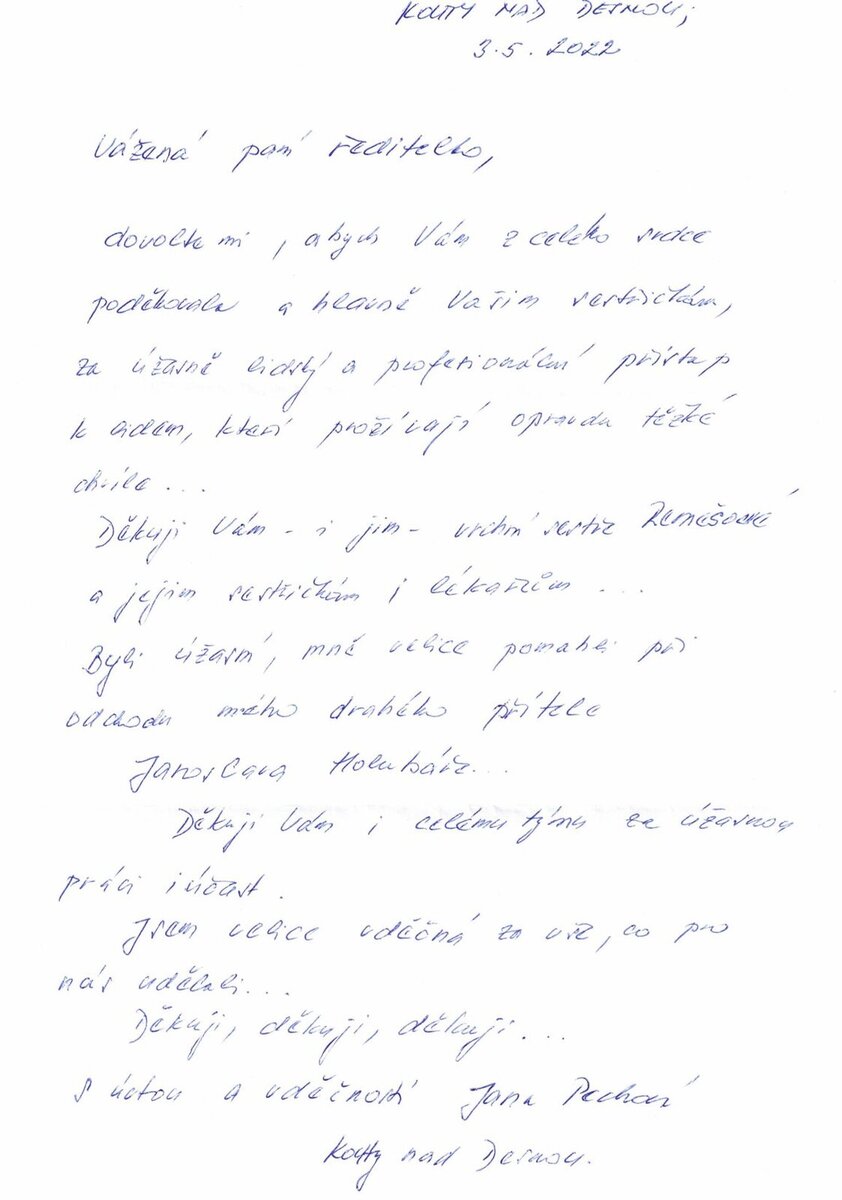 KOUTY NAD DESNOU,
3.5.2022
Vážená paní ředitelko,
dovolte mi, abych Vám z celého srdce
poděkovala a hlavně Vašim sestřičkám,
za úžasně lidský a profesionální přístup
k lidem, kteří prožívají opravdu těžké
chvíle...
Děkuji Vám - i jim - vrchní sestře
a jejím sestřičkám i lékařům ...
Byli úžasní, mně velice pomohli při
odchodu mého drahého přítele
Jaroslava Holubáře...
Děkuji Vám i celému týmu za úžasnou
práci i účast.
Jsem velice vděčná za vše, co pro
nás udělali...
Děkuji, děkuji, děkuji...
S úctou a vděčností Jana
Kouty nad Desnou.